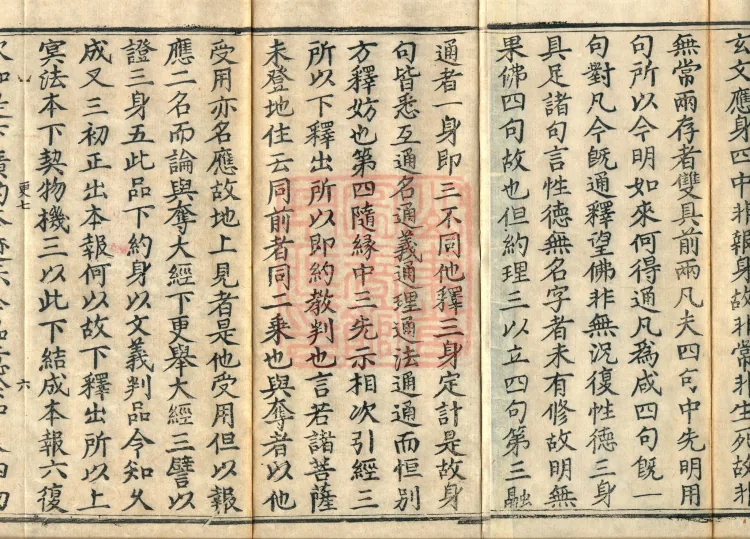 玄文應身四中非報身故非常非生死故非
無常兩存者雙具前兩凡夫四句中先明用
句所以今明如來何得通凡為成四句既一
句對凡今既通釋望佛非無況復性德三身
具足諸句言性德無名字者未有修故明無
果佛四句故也但約理三以立四句第三融
通者一身即三不同他釋三身定計是故身
句皆悉互通名通義通理通法通通而恒別
方釋妨也第四隨緣中三先示相次引經三
所以下釋出所以即約教判也言若諸菩薩
未登地住云同前者同二乘也與奪者以他
受用亦名應故地上見者是他受用但以報
應二名而論與奪大經下更舉大經三譬以
證三身五此品下約身以文義判品令知久
成又三初正出本報何以故下釋出所以上
冥法本下契物機三以此下結成本報六復
更七
六